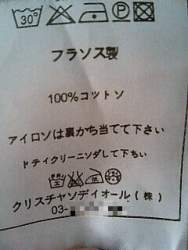 30°
フラソス製
100%コットソ
アイロソは裏かち当てて下さい
ドテイクリーニソダして下ち
クリスチャソディオール(株)
03-